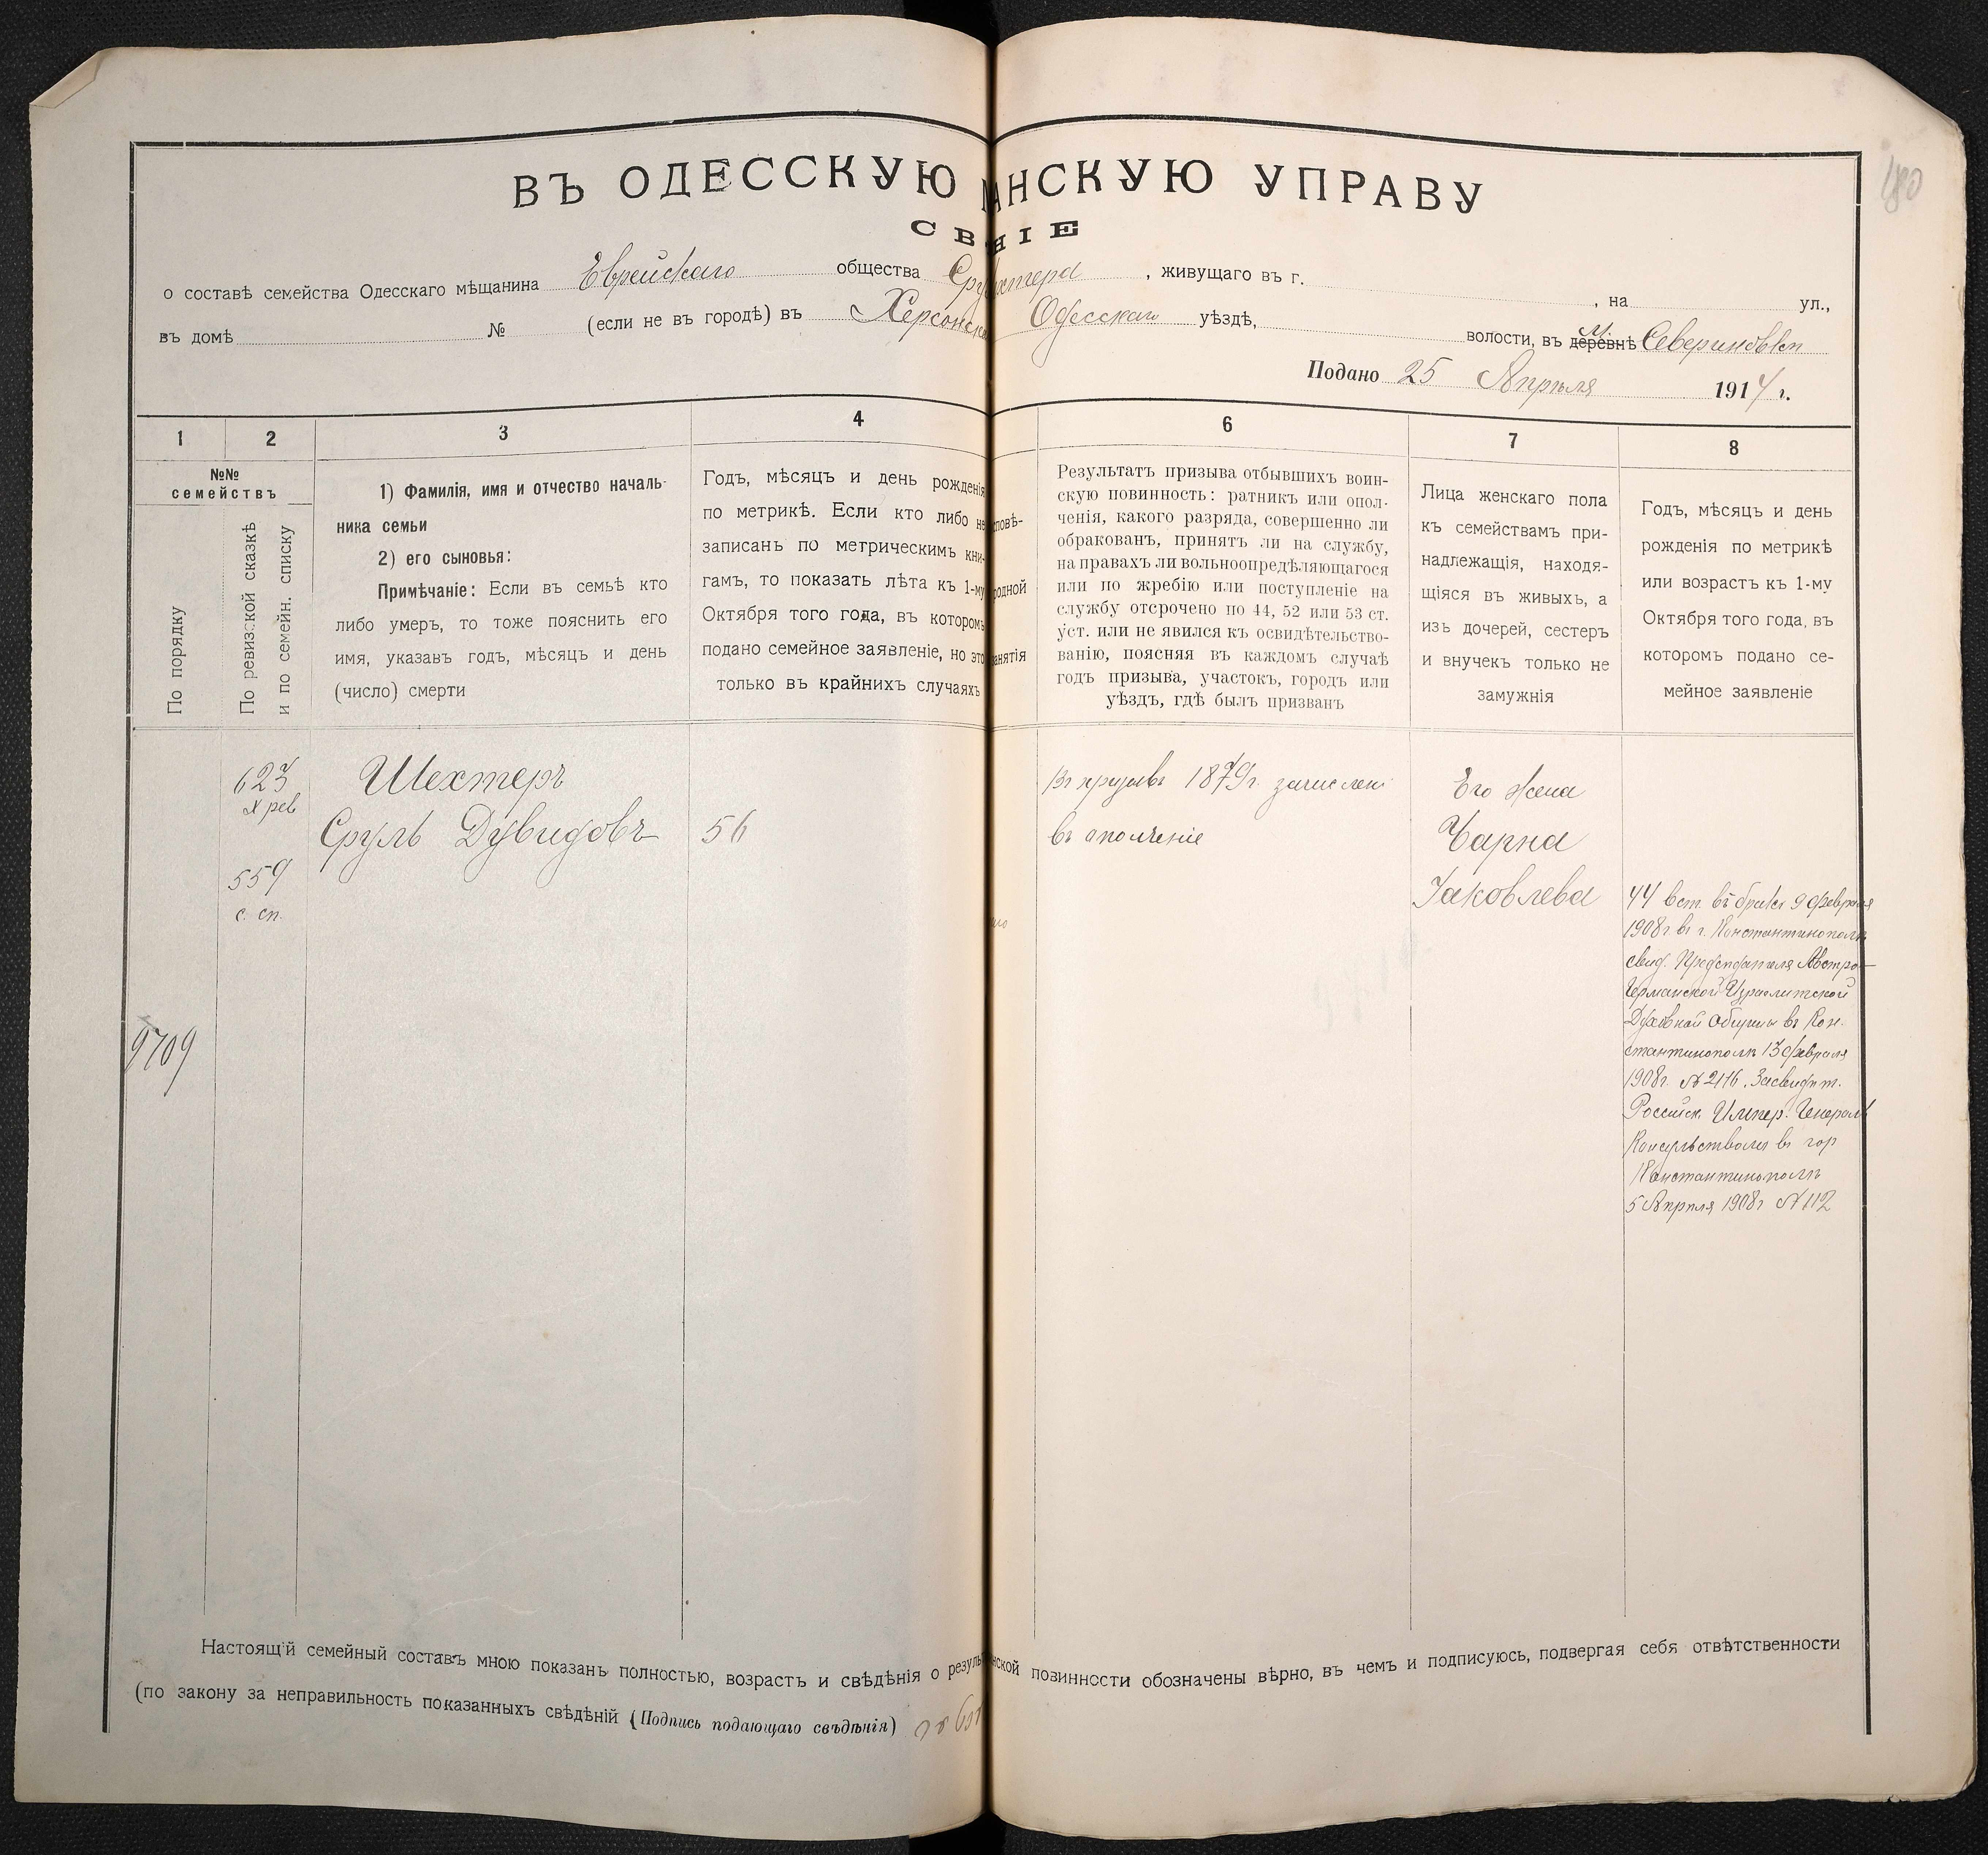 180
ВЪ ОДЕССКУЮ АНСКУЮ УПРАВУ
СВ НІЕ
о составѣ семейства Одесскаго мѣщанина Еврейскаго общества Сру хтера, живущаго въ г. , на ул.,
въ домѣ № (если не въ городѣ) въ Херсонск Одесскаго уѣздѣ, волости, въ деревнѣ м. Севериновкѣ
Подано 25 Апрѣля 1914 г.
1 2 3 4 6 7 8
№№
семействъ
По порядку
По ревизской сказкѣ
и по семейн. списку
1) Фамилія, имя и отчество началь-
ника семьи
2) его сыновья:
Примѣчаніе: Если въ семьѣ кто
либо умеръ, то тоже пояснить его
имя, указавъ годъ, мѣсяцъ и день
(число) смерти
Годъ, мѣсяцъ и день рожденія
по метрикѣ. Если кто либо не
записанъ по метрическимъ кни-
гамъ, то показать лѣта къ 1-му
Октября того года, въ которомъ
подано семейное заявленіе, но это
только въ крайнихъ случаяхъ
повѣ-
родной
занятія
Результатъ призыва отбывшихъ воин-
скую повинность: ратникъ или опол-
ченія, какого разряда, совершенно ли
обракованъ, принятъ ли на службу,
на правахъ ли вольноопредѣляющагося
или по жребію или поступленіе на
службу отсрочено по 44, 52 или 53 ст.
уст. или не явился къ освидѣтельство-
ванію, поясняя въ каждомъ случаѣ
годъ призыва, участокъ, городъ или
уѣздъ, гдѣ былъ призванъ
Лица женскаго пола
къ семействамъ при-
надлежащія, находя-
щіяся въ живыхъ, а
изъ дочерей, сестеръ
и внучекъ только не
замужнія
Годъ, мѣсяцъ и день
рожденія по метрикѣ
или возрастъ къ 1-му
Октября того года, въ
которомъ подано се-
мейное заявленіе
9709
623
X рев
559
с. сп.
Шехтеръ
Сруль Дувидовъ
56
Въ призывъ 1879г. зачисленъ
въ ополченіе
Его жена
Чарна
Яковлева
44 вст. въ бракъ 9 февраля
1908г. въ г. Константинополѣ
свид. Предсѣдателя Австро-
Германской Израелитской
Духовной Общины въ Кон-
стантинополѣ 13 февраля
1908г. № 2116. Засвидѣт.
Россійск. Импер. Генерал
Консульствомъ въ гор
Константинополѣ
5 Апрѣля 1908г № 112
Настоящій семейный составъ мною показанъ полностью, возрастъ и свѣдѣнія о резуль нской повинности обозначены вѣрно, въ чемъ и подписуюсь, подвергая себя отвѣтственности
(по закону за неправильность показанныхъ свѣдѣній (Подпись подающаго свѣдѣнія)